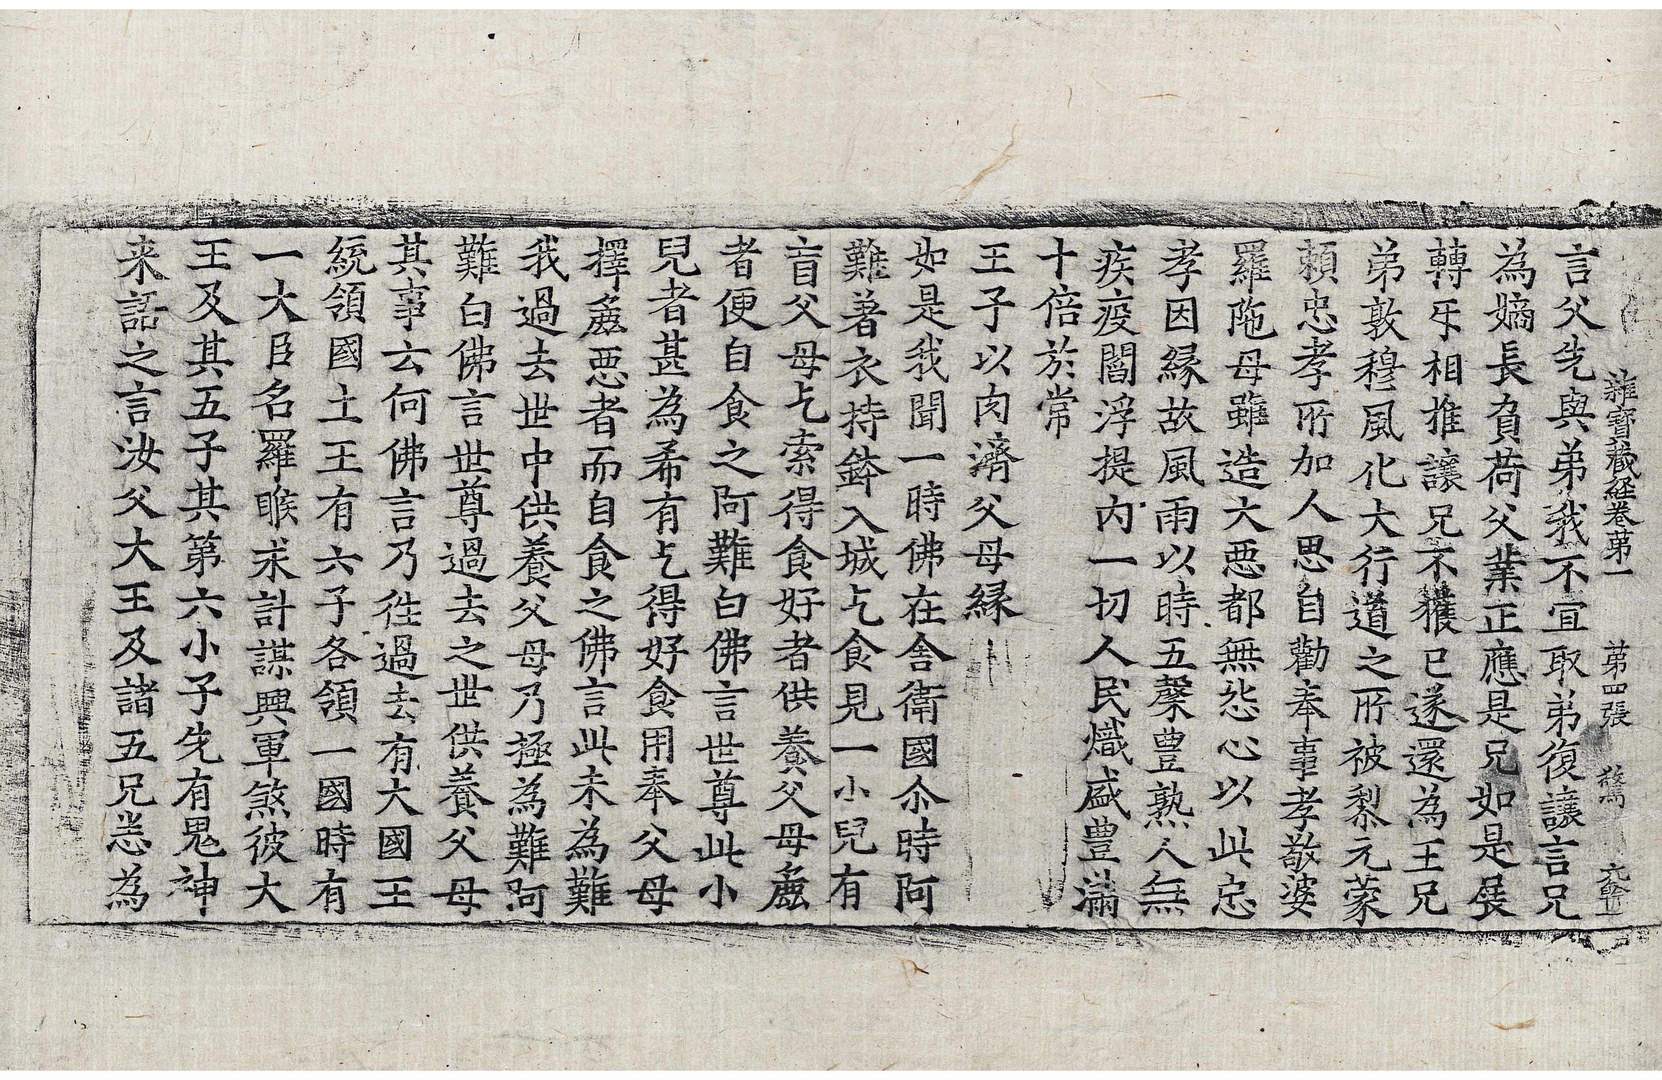 雜寶藏経卷第一　第四張　驚
言父先與弟我不宜取弟復讓言兄
為嫡長負荷父業正應是兄如是展
轉㸦相推讓兄不獲已遂還為王兄
弟敦穆風化大行道之所被黎元蒙
頼忠孝所加人思自勸奉事孝敬婆
羅陁母雖造大惡都無恚心以此忠
孝因縁故風雨以時五糓豊熟人無
疾疫閻浮提内一切人民熾盛豊滿
十倍於常
王子以肉濟父母縁
如是我聞一時佛在舎衛國尒時阿
難著衣持鉢入城乞食見一小兒有
盲父母乞索得食好者供養父母麁
者便自食之阿難白佛言世尊此小
兒者甚為希有乞得好食用奉父母
擇麁惡者而自食之佛言此未為難
我過去世中供養父母乃極為難阿
難白佛言世尊過去之世供養父母
其事云何佛言乃徃過去有大國王
統領國土王有六子各領一國時有
一大臣名羅睺求計謀興軍煞彼大
王及其五子其第六小子先有鬼神
来語之言汝父大王及諸五兄悉為